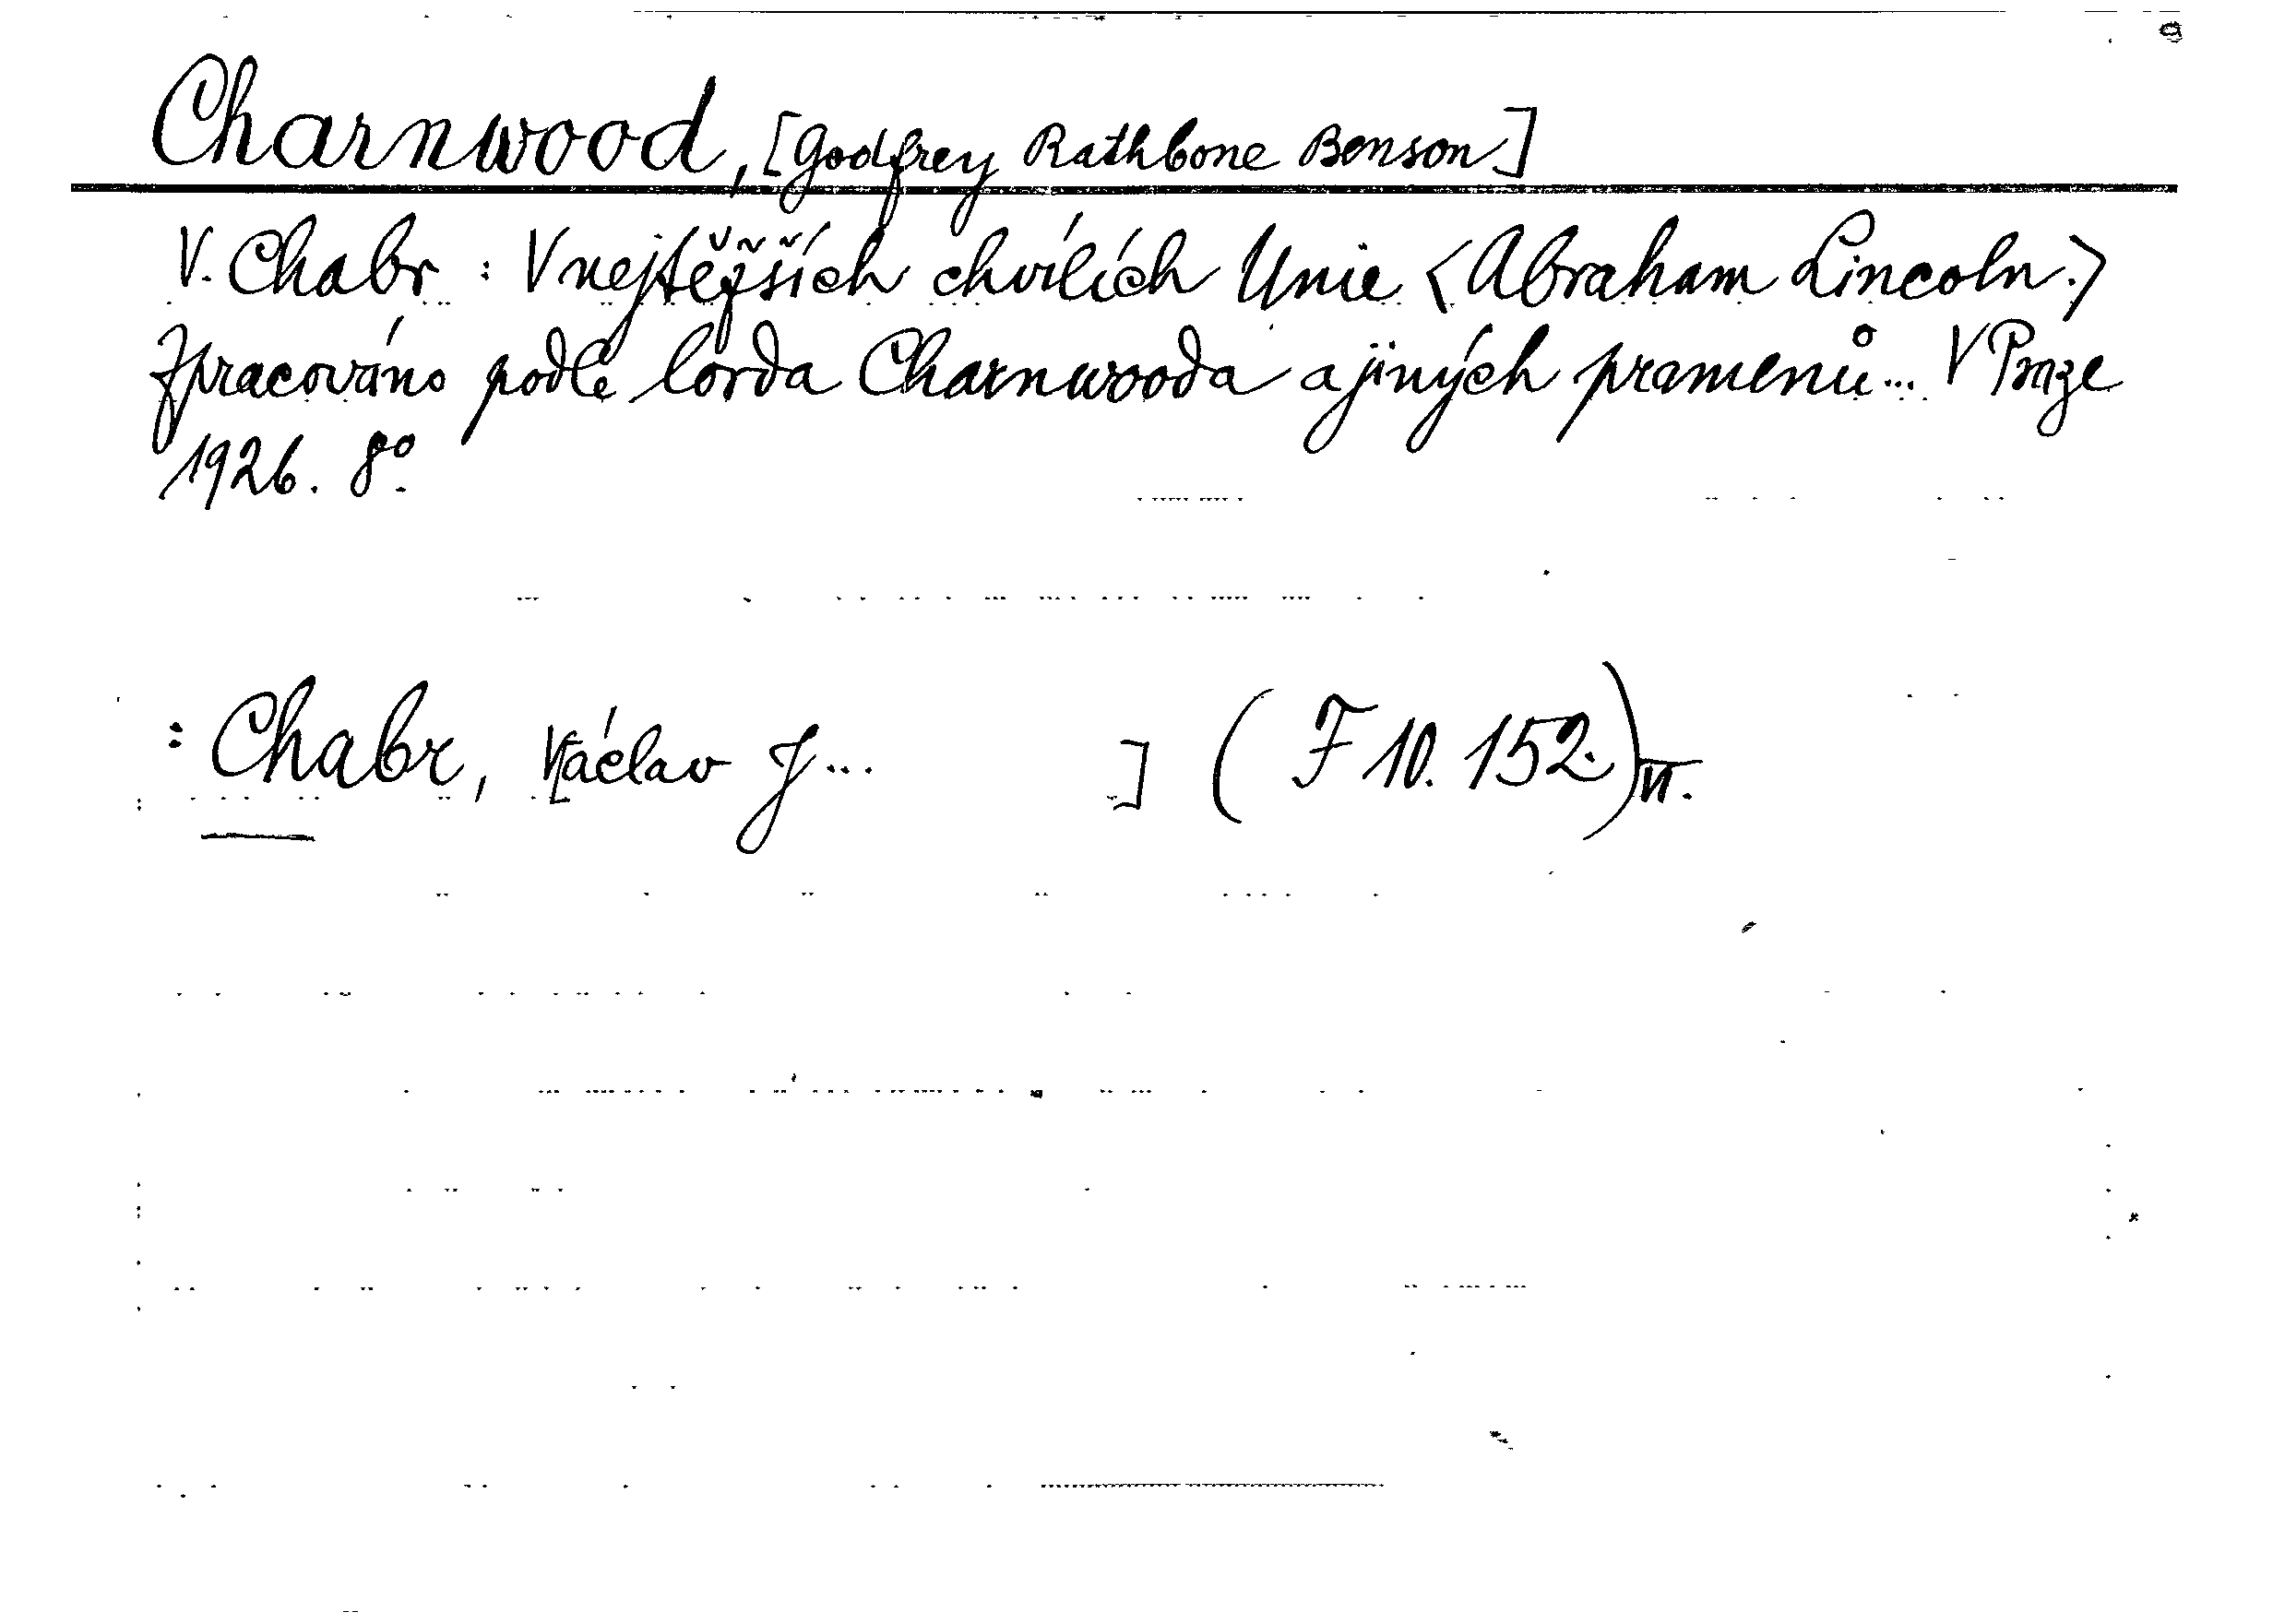 Charnwood, [Godfrey Rathbone Benson]
V. Chabr : V nejtěžších chvílích Unie <Abraham Lincoln.>
Zpracováno podle lorda Charnwooda a jiných pramenů... V Praze
1926. 8°.
: Chabr, [Václav J... ] (F 10. 152.) VI.